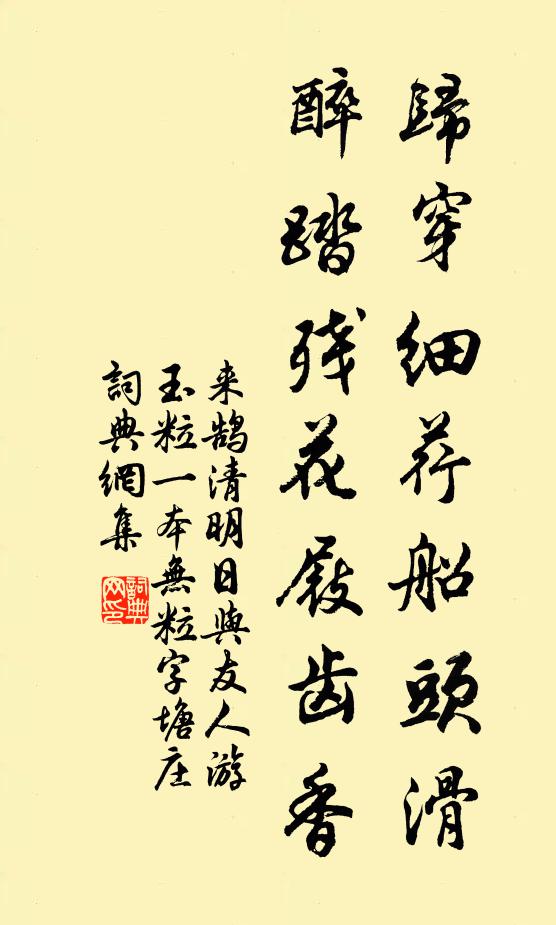 歸穿細荇船頭滑
醉踏残花屐齿香
来鹄清明日與友人游
玉粒一本無粒字塘庄
詞典網集
詞典网印